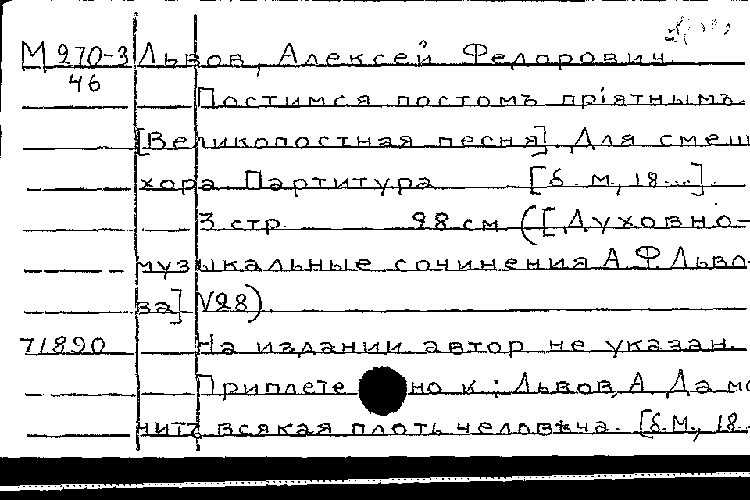 М 270-3 Львов, Алексей Федорович.
46
Постимся постомъ прiятнымъ.
[Великопостная песня]. Для смеш
хора. Партитура [б. м., 18...].
3 стр. 28 см ([Духовно-
музыкальные сочинения А. Ф. Льво-
ва] №28).
71890 На издании автор не указан.
Приплете но к: Львов, А. Да мо
чит всякая плоть человѣча. [б. м., 18